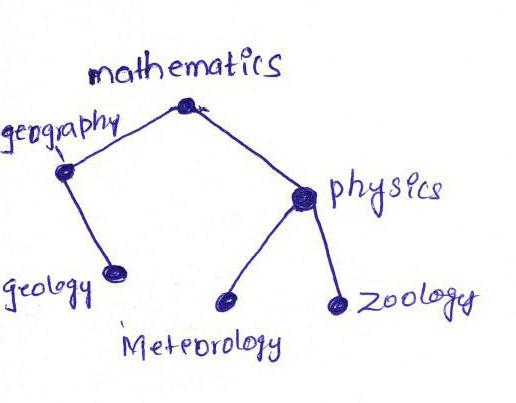 mathematics
geography
physics
geology
zoology
Meteorology